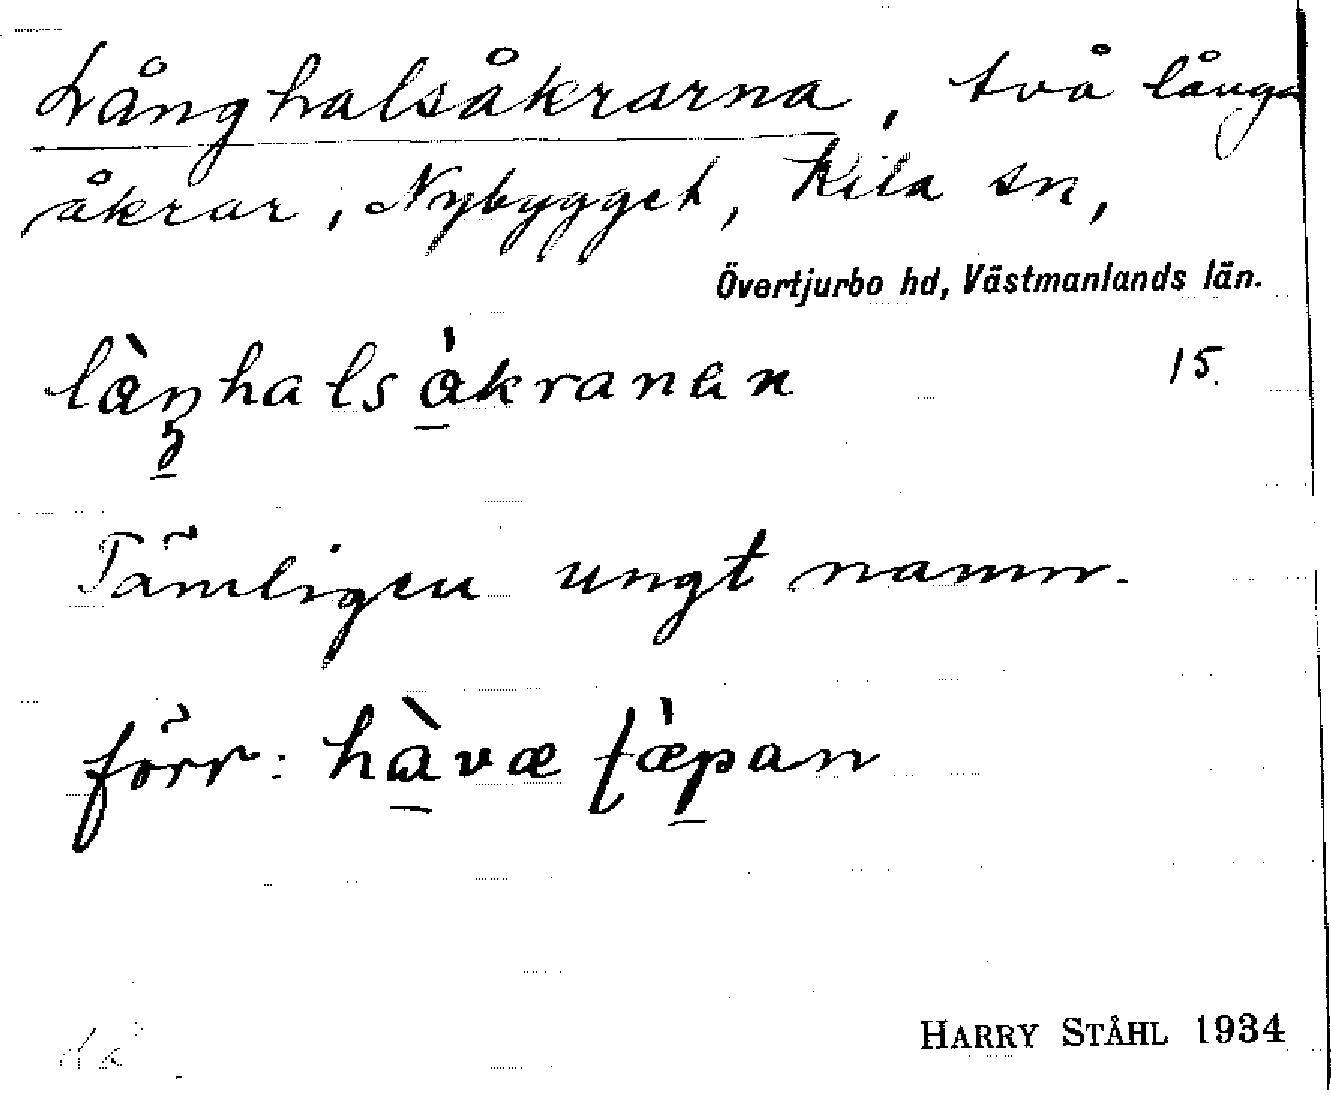 Långhalsåkrarna, två långa
åkrar, Nybygget, Kila sn,
Övertjurbo hd, Västmanlands län.
làŋhalsàkranan 15.
Tämligen ungt namn.
förr: hàvæ tæ̀pan
HARRY STÅHL 1934